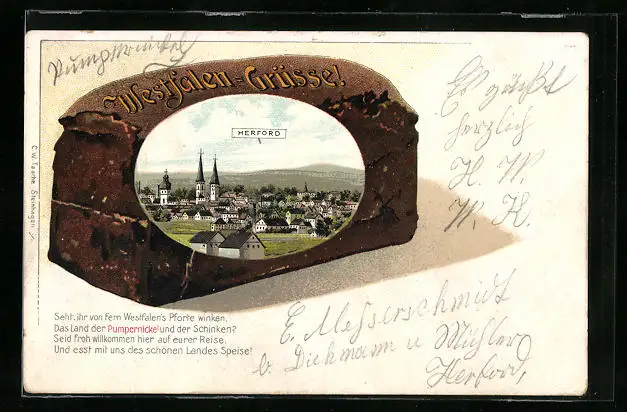 Pumpernickel
Westfalen-Grüsse!
HERFORD
Es grüßt
herzlich
H. W.
W. H.
Seht, ihr von fern Westfalen's Pforte winken,
Das Land der Pumpernickel und der Schinken?
Seid froh willkommen hier auf eurer Reise,
Und esst mit uns des schönen Landes Speise!
E. Messerschmidt
b. Diekmann u
Herford,